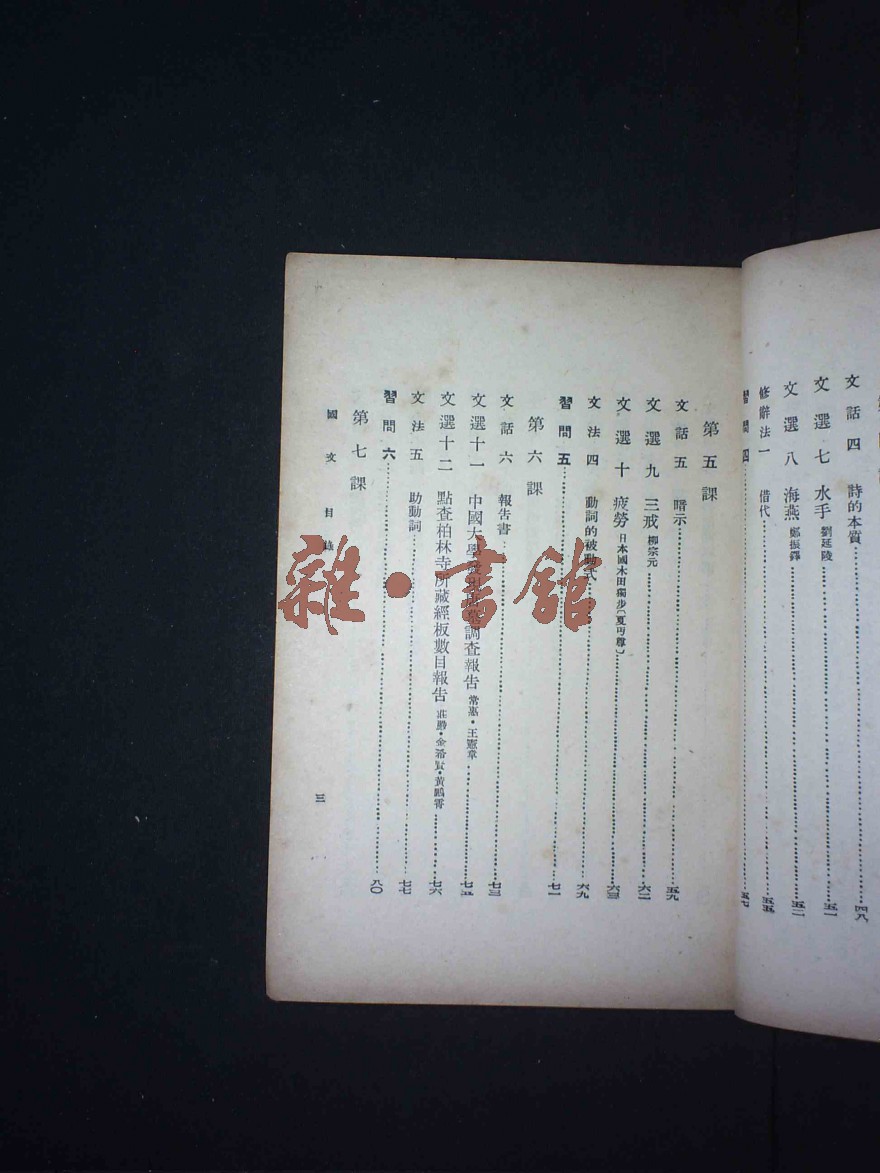 文話四　詩的本質　四八
文選七　水手　劉延陵　五一
文選八　海燕　鄭振鐸　五二
修辭法一　借代　五五
習問四　五七
第五課
文話五　暗示　五九
文選九　三戒　柳宗元　六二
文選十　疲勞　日本國木田獨步〔夏丏尊〕　六三
文法四　動詞的被動式　六九
習問五　七一
第六課
文話六　報告書　七三
文選十一　中國大學　調查報告　常惠・王憲章　七五
文選十二　點查柏林寺所藏經板數目報告　莊嚴・金・黃鵬霄　七六
文法五　助動詞　七七
習問六　八〇
第七課
國文目錄　三
雜・書館